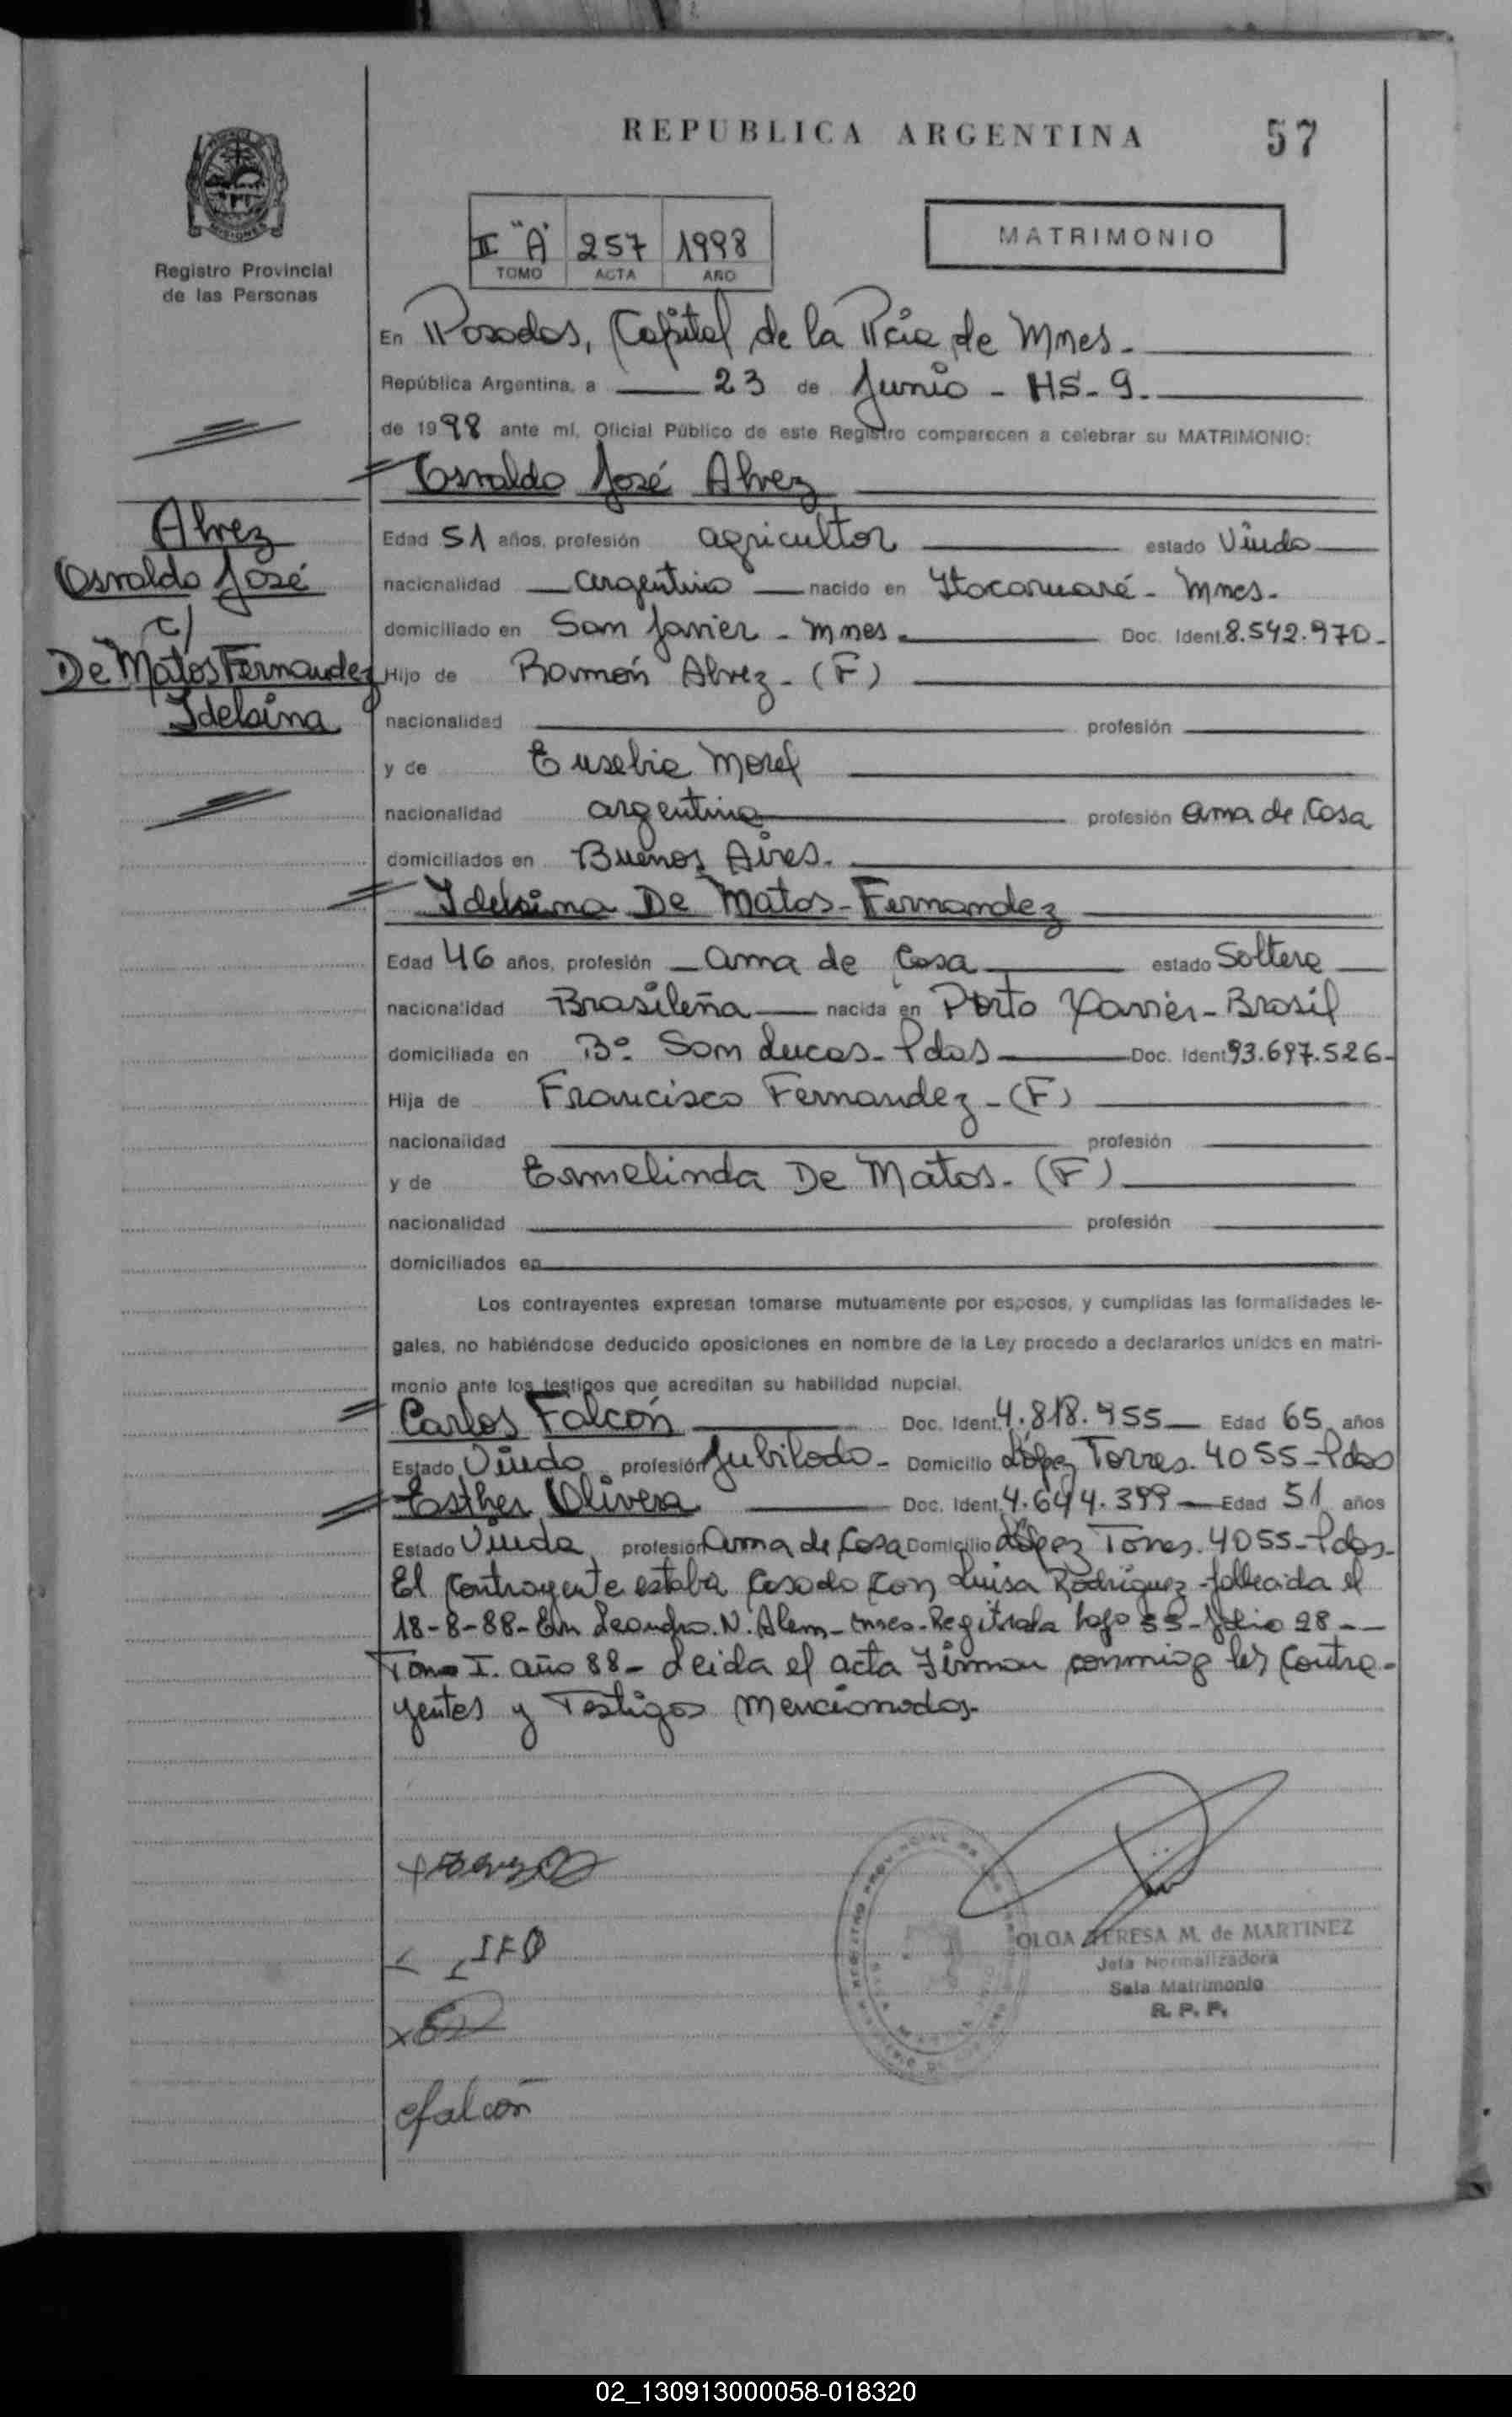 REPUBLICA ARGENTINA
57
MISIONES
Registro Provincial
de las Personas
II "A" 257 1998
TOMO ACTA AÑO
MATRIMONIO
En Posadas, Capital de la Pcia de Mnes.
República Argentina, a 23 de Junio - HS. 9.
de 1998 ante mí, Oficial Público de este Registro comparecen a celebrar su MATRIMONIO:
Osvaldo José Alvez
Alvez
Osvaldo José
c/
De Matos Fernandez
Idelsina
Edad 51 años, profesión agricultor estado Viudo
nacionalidad argentino nacido en Itacaruaré - Mnes.
domiciliado en San Javier - Mnes. Doc. Ident. 8.542.970.
Hijo de Ramón Alvez - (F)
nacionalidad profesión
y de Eusebia Morel
nacionalidad argentina profesión ama de Casa
domiciliados en Buenos Aires.
Idelsina De Matos-Fernandez
Edad 46 años, profesión ama de Casa estado Soltera
nacionalidad Brasileña nacida en Porto Xavier - Brasil
domiciliada en B° San Lucas - Pdas Doc. Ident. 93.697.526-
Hija de Francisco Fernandez - (F)
nacionalidad profesión
y de Ermelinda De Matos. (F)
nacionalidad profesión
domiciliados en
Los contrayentes expresan tomarse mutuamente por esposos, y cumplidas las formalidades le-
gales, no habiéndose deducido oposiciones en nombre de la Ley procedo a declararlos unidos en matri-
monio ante los testigos que acreditan su habilidad nupcial.
Carlos Falcón Doc. Ident. 4.818.955 Edad 65 años
Estado Viudo profesión Jubilado - Domicilio López Torres. 4055 - Pdas
Esther Olivera Doc. Ident. 4.644.399 Edad 51 años
Estado Viuda profesión ama de Casa Domicilio López Torres. 4055 - Pdas.
El contrayente estaba Casado con Luisa Rodríguez - fallecida el
18-8-88 - En Leandro. N. Alem - Mnes - Regitrada bajo 55 - folio 28 --
Tomo I. año 88 - Leida el acta Firman conmigo los Contra-
yentes y Testigos Mencionados.
IFD
efalcón
OLGA TERESA M. de MARTINEZ
Jefa Normalizadora
Sala Matrimonio
R. P. P.
02_130913000058-018320